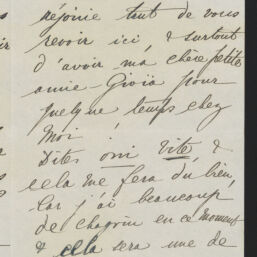 réjouie tant de vous
revoir ici, & surtout
d'avoir ma chère petite
amie - Gioïa pour
quelque temps chez
Moi !
Dites oui vite &
cela me fera du bien,
Car j'ai beaucoup
de chagrin en ce moment
& cela sera une de